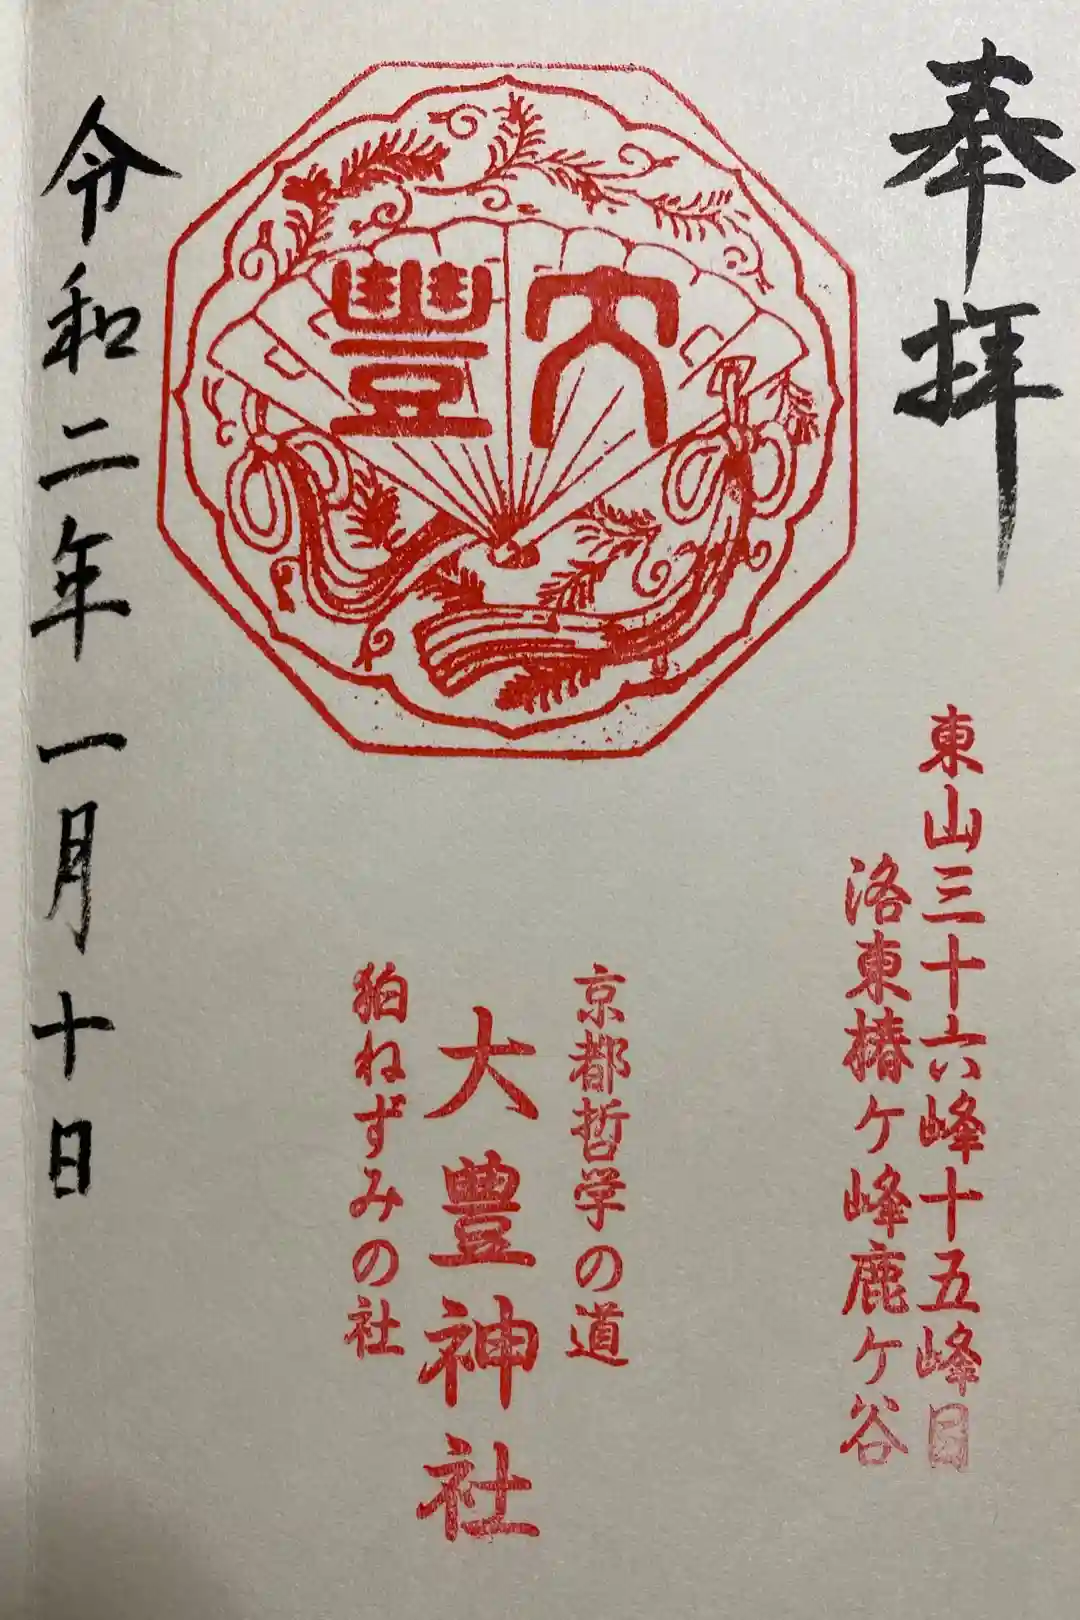 奉拝
東山三十六峰十五峰目
洛東椿ケ峰鹿ケ谷
大豊
京都哲学の道
大豊神社
狛ねずみの社
令和二年一月十日